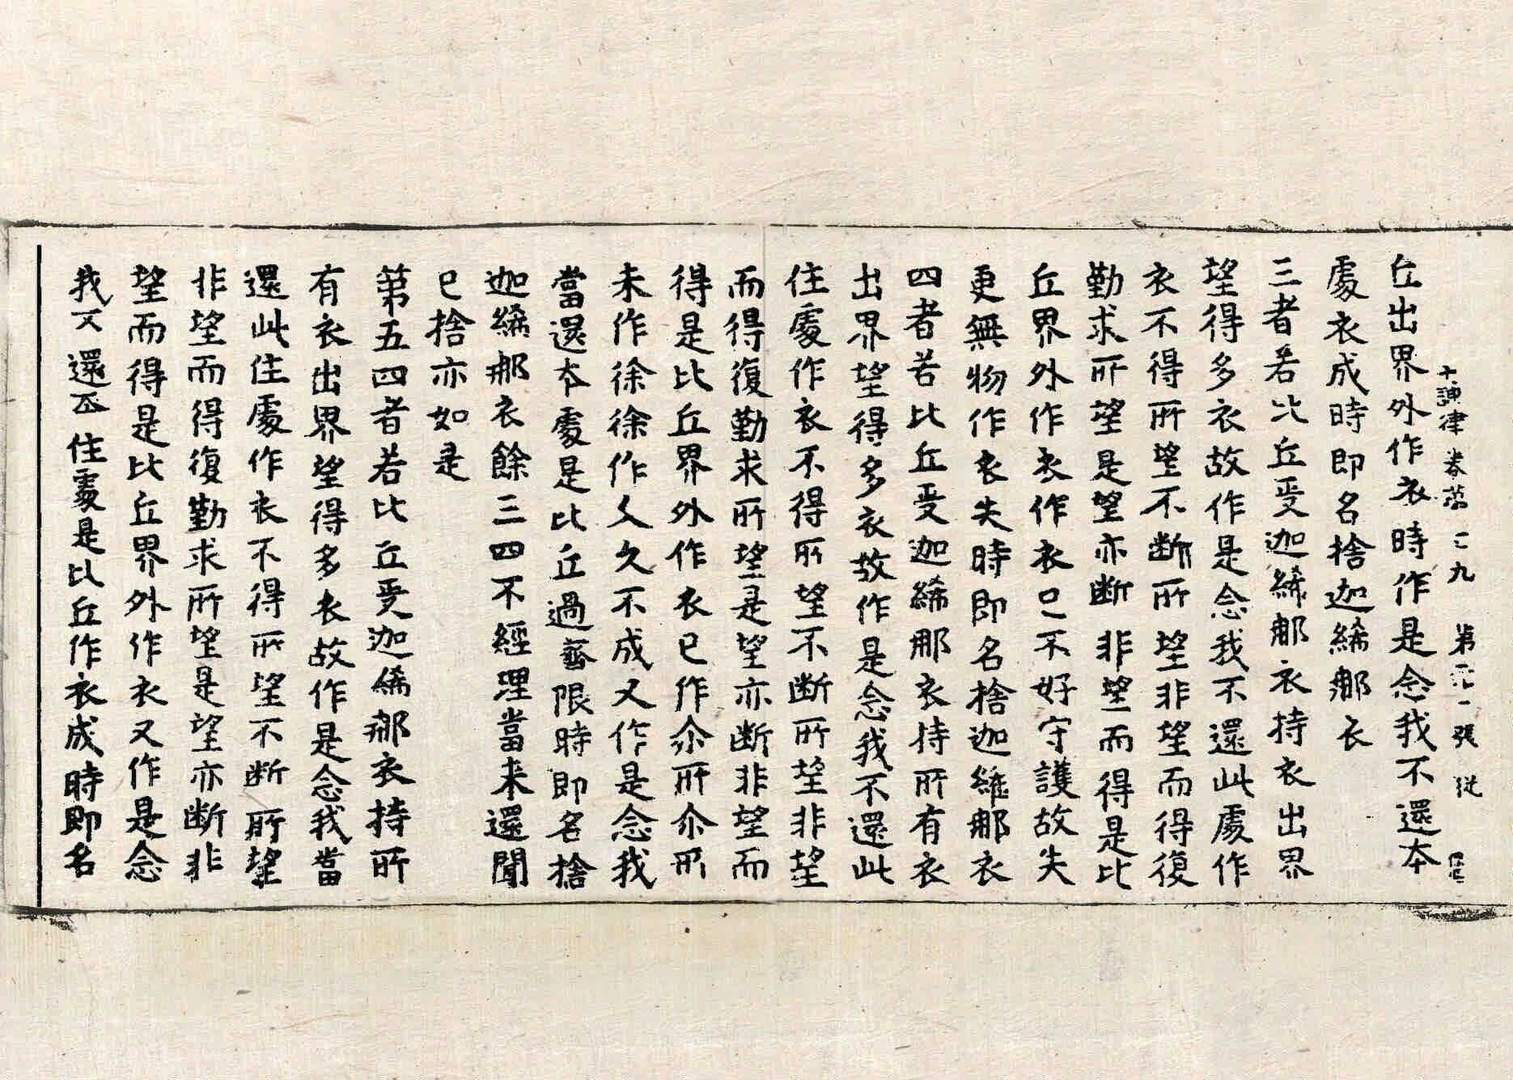 十誦律 卷第二九 第 一張 従
丘出界外作衣時作是念我不還本
處衣成時即名捨迦絺那衣
三者若比丘受迦絺那衣持衣出界
望得多衣故作是念我不還此處作
衣不得所望不斷所望非望而得復
勤求所望是望亦斷非望而得是比
丘界外作衣作衣已不好守護故失
更無物作衣失時即名捨迦絺那衣
四者若比丘受迦絺那衣持所有衣
出界望得多衣故作是念我不還此
住處作衣不得所望不斷所望非望
而得復勤求所望是望亦斷非望而
得是比丘界外作衣已作尒所尒所
未作徐徐作久久不成又作是念我
當還本處是比丘過齊限時即名捨
迦絺那衣餘三四不經理當來還聞
已捨亦如是
第五四者若比丘受迦絺那衣持所
有衣出界望得多衣故作是念我當
還此住處作衣不得所望不斷所望
非望而得復勤求所望是望亦斷非
望而得是比丘界外作衣又作是念
我不還本住處是比丘作衣成時即名